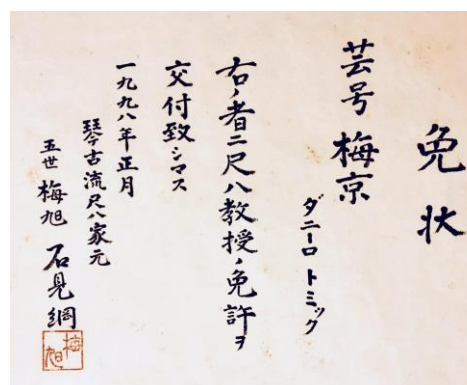 免状
芸号 梅京
ダニーロ トミック
右ノ者ニ尺八教授ノ免許ヲ
交付致シマス
一九九八年正月
琴古流尺八家元
五世 梅旭 石見綱
梅旭